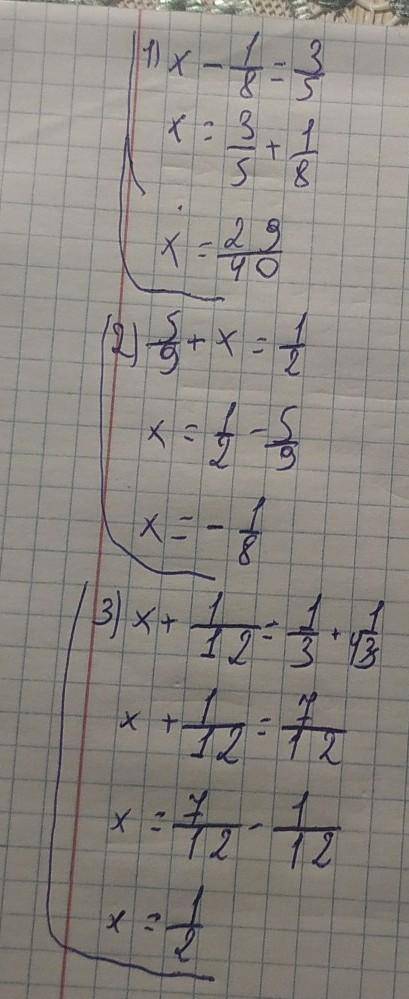 1) x - 1/8 = 3/5
x = 3/5 + 1/8
x = 29/40
2) 5/9 + x = 1/2
x = 1/2 - 5/9
x = - 1/8
3) x + 1/12 = 1/3 + 1/4
x + 1/12 = 7/12
x = 7/12 - 1/12
x = 1/2